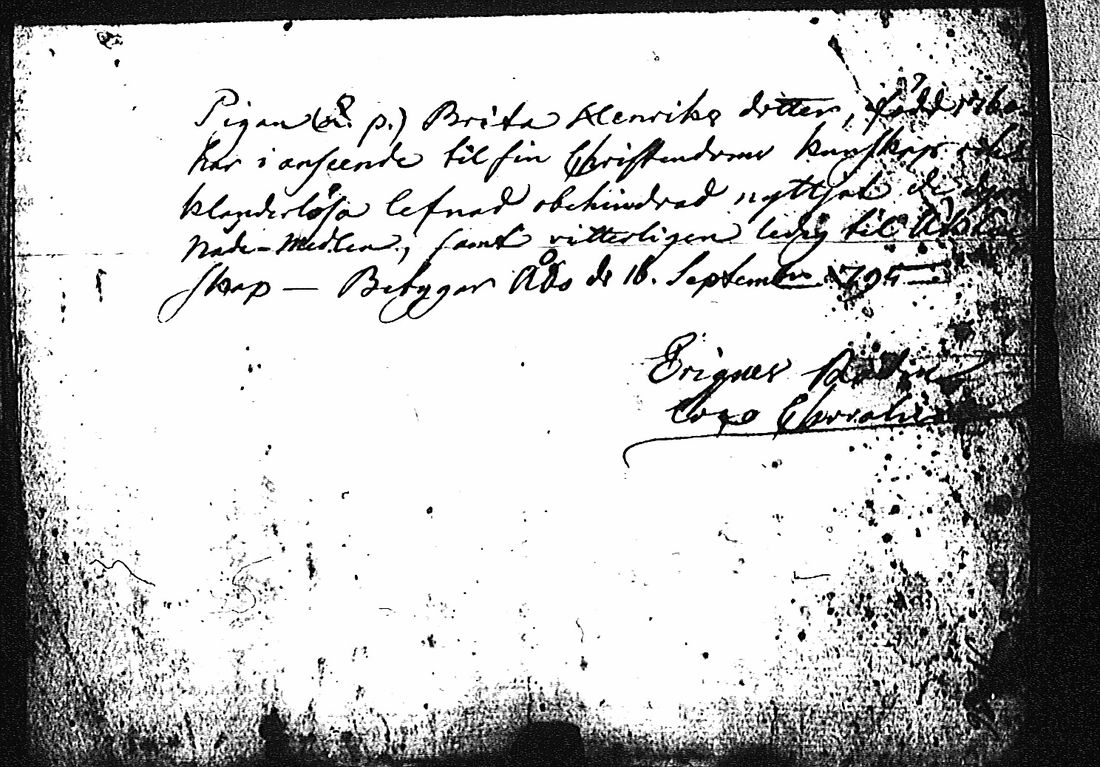 Pigan (S. p.) Brita Henriks dotter, född 176
har i anseende til sin Christendoms kunskap och
klanderlösa lefnad obehindrad nyttjat de dyra
Nade-Medlen, samt vitterligen ledig til Äkten
skap — Betygar Åbo d: 16. September 1795